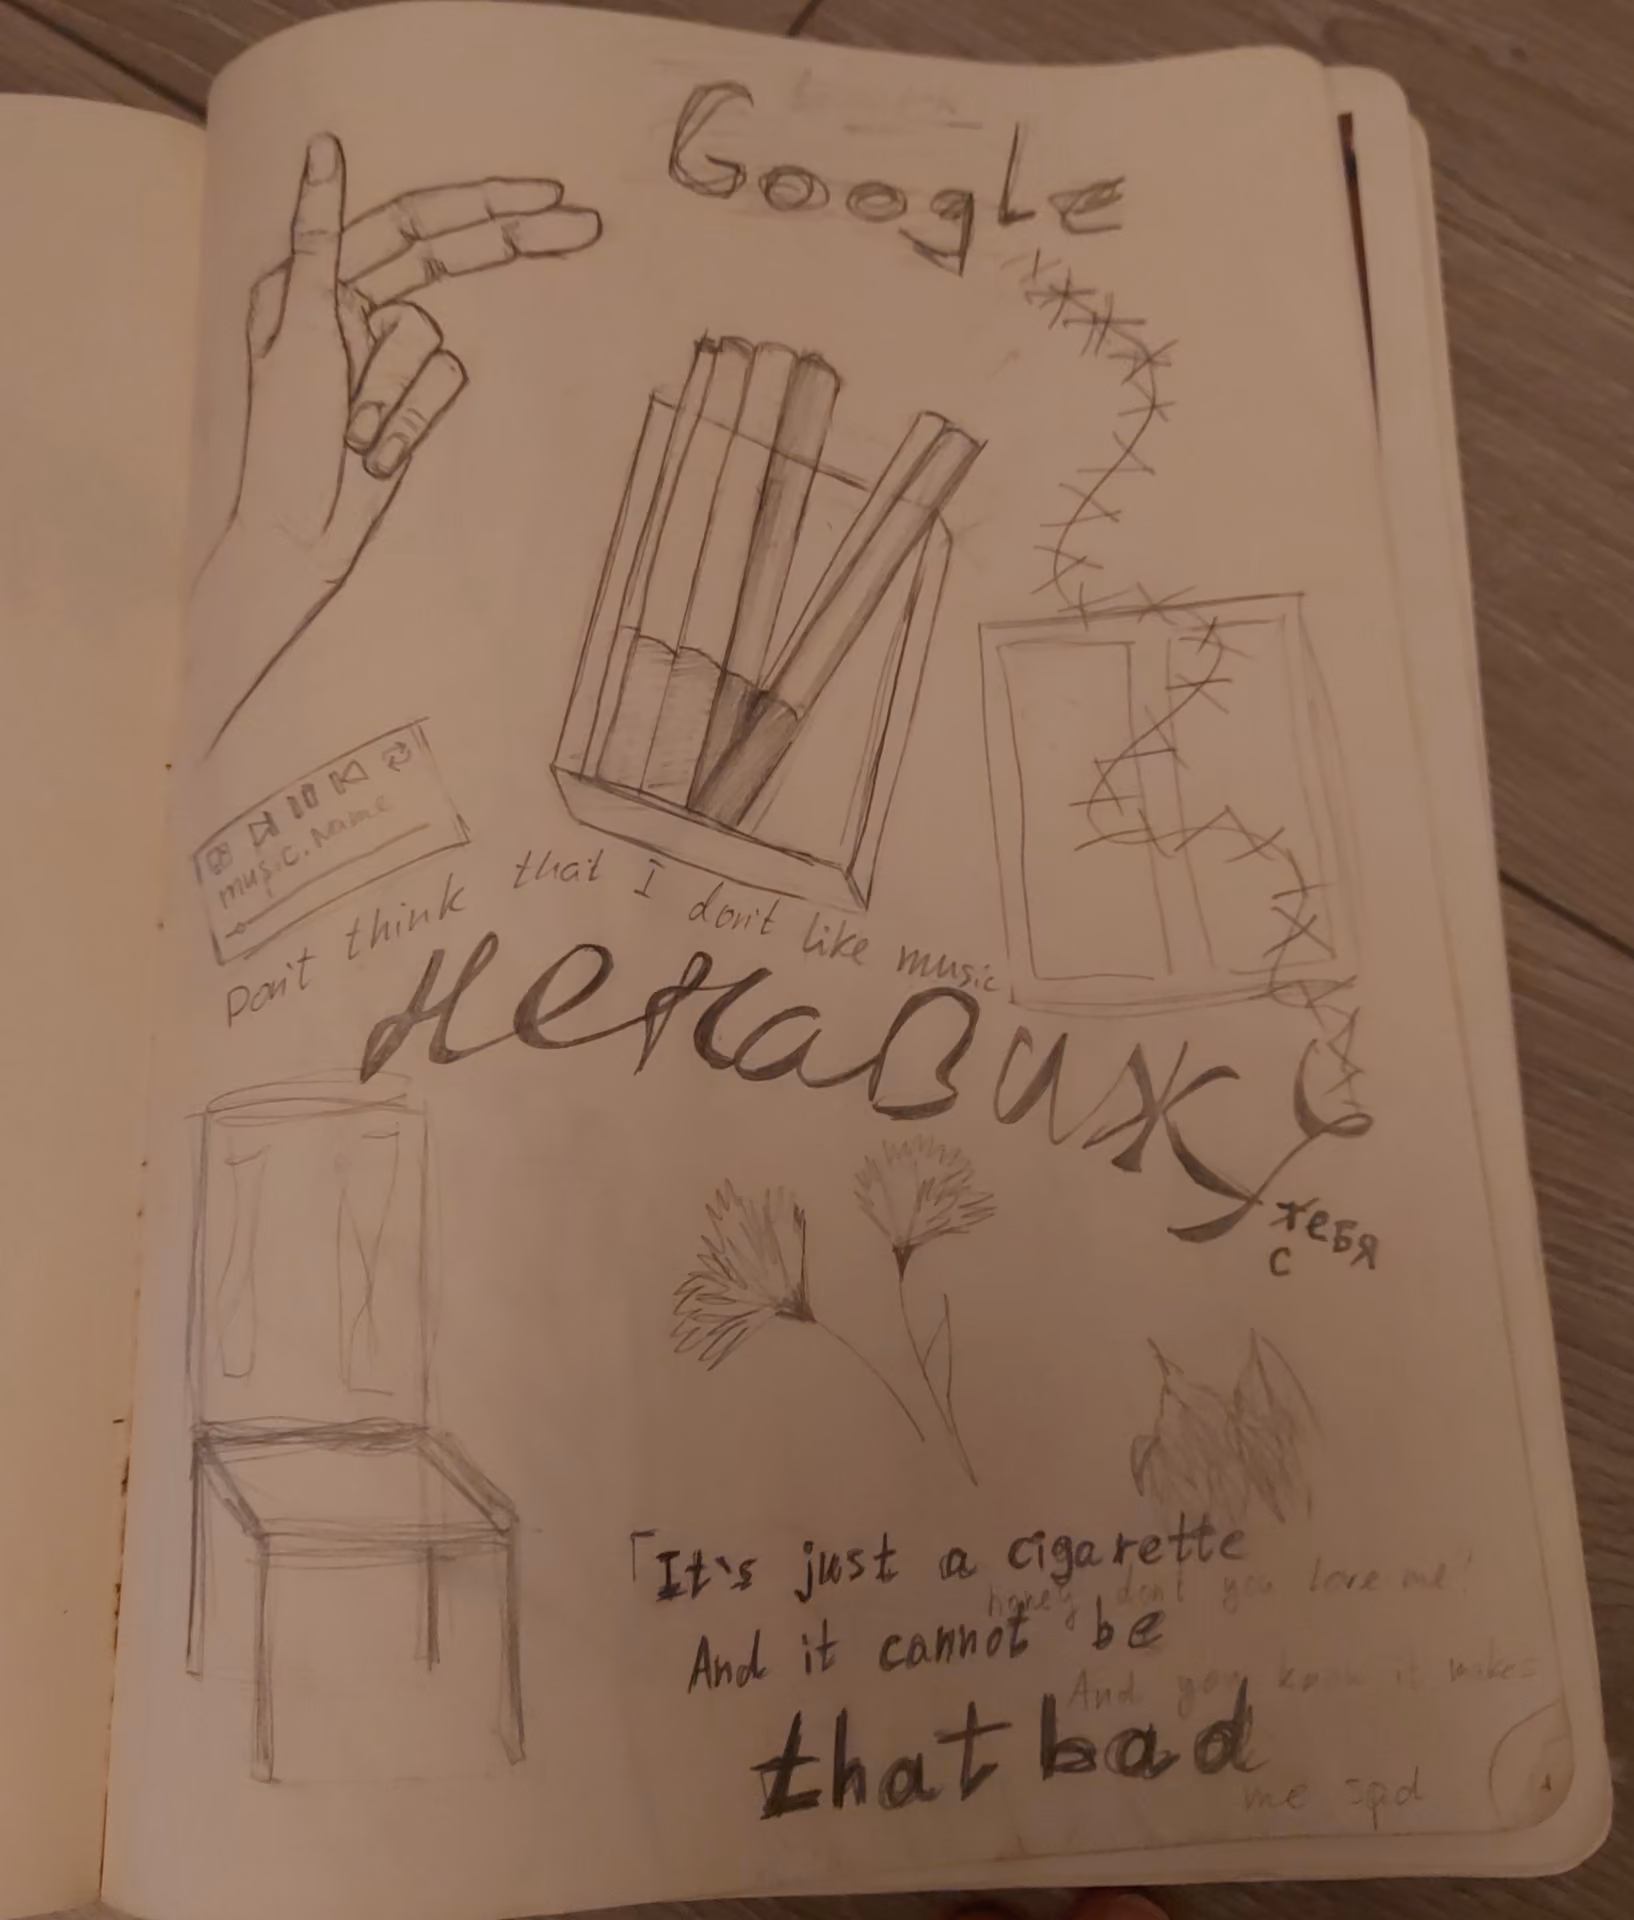 Google
music.Name
Don't think that I don't like music
ненавижу
тебя
с
「It's just a cigarette
honey don't you love me?
And it cannot be
And you know it makes
that bad
me sad